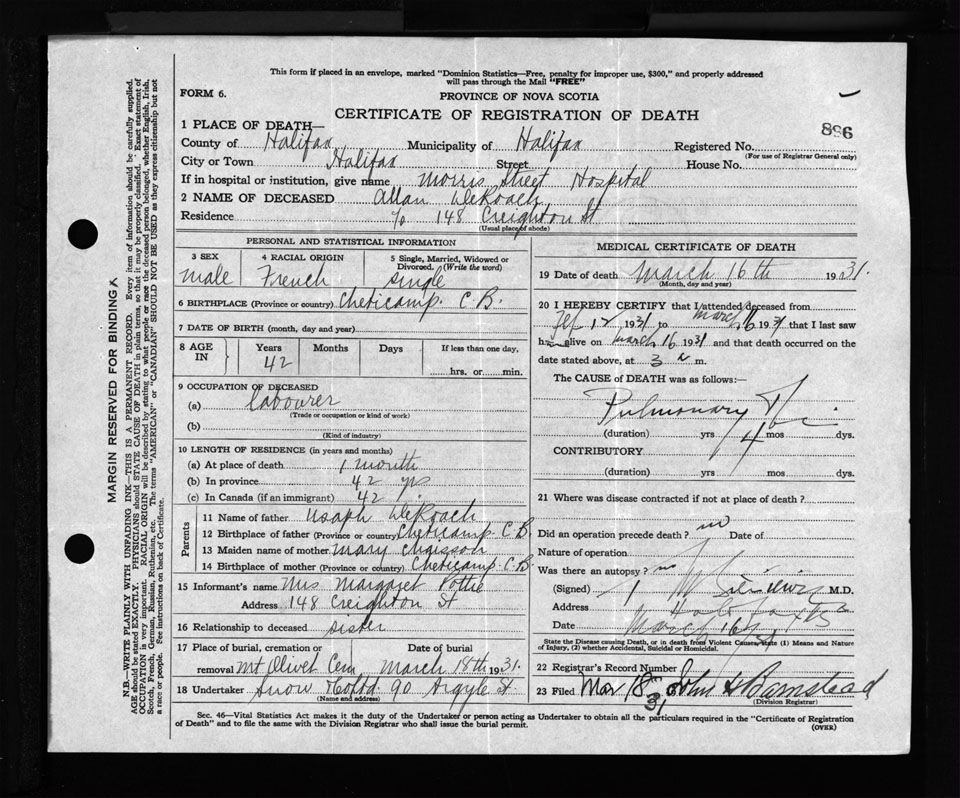 This form if placed in an envelope, marked "Dominion Statistics—Free, penalty for improper use, $300," and properly addressed
will pass through the Mail "FREE"
FORM 6.
PROVINCE OF NOVA SCOTIA
CERTIFICATE OF REGISTRATION OF DEATH
886
1 PLACE OF DEATH—
County of Halifax Municipality of Halifax Registered No.
(For use of Registrar General only)
City or Town Halifax Street House No.
If in hospital or institution, give name Morris Street Hospital
2 NAME OF DECEASED Allan DeRoach
Residence c/o 148 Creighton St
(Usual place of abode)
PERSONAL AND STATISTICAL INFORMATION
3 SEX 4 RACIAL ORIGIN 5 Single, Married, Widowed or
Divorced. (Write the word)
male French single
6 BIRTHPLACE (Province or country) Cheticamp C.B.
7 DATE OF BIRTH (month, day and year)
8 AGE IN Years Months Days If less than one day,
42 hrs. or min.
9 OCCUPATION OF DECEASED
(a) labourer
(Trade or occupation or kind of work)
(b)
(Kind of industry)
10 LENGTH OF RESIDENCE (in years and months)
(a) At place of death 1 month
(b) In province 42 yrs
(c) In Canada (if an immigrant) 42
Parents
11 Name of father DeRoach
12 Birthplace of father (Province or country) Cheticamp C.B.
13 Maiden name of mother Mary Chaisson
14 Birthplace of mother (Province or country) Cheticamp C.B.
15 Informant's name Mrs Margaret Pottie
Address 148 Creighton St
16 Relationship to deceased sister
17 Place of burial, cremation or Date of burial
removal Mt Olivet Cem March 18th 1931.
18 Undertaker Snow & Co Ltd. 90 Argyle St.
(Name and address)
MEDICAL CERTIFICATE OF DEATH
19 Date of death March 16th 1931.
(Month, day and year)
20 I HEREBY CERTIFY that I attended deceased from
Feb 12 1931 to March 16 1931 that I last saw
h alive on March 16 1931 and that death occurred on the
date stated above, at 3 a m.
The CAUSE of DEATH was as follows:—
Pulmonary
(duration) yrs 4 mos dys.
CONTRIBUTORY
(duration) yrs mos dys.
21 Where was disease contracted if not at place of death?
Did an operation precede death? no Date of
Nature of operation
Was there an autopsy? no
(Signed) M.D.
Address Halifax N.S.
Date March 16/31
State the Disease causing Death, or in death from Violent Causes, state (1) Means and Nature
of Injury, (2) whether Accidental, Suicidal or Homicidal.
22 Registrar's Record Number
23 Filed Mar 18 31 John H Barnstead
(Division Registrar)
Sec. 46—Vital Statistics Act makes it the duty of the Undertaker or person acting as Undertaker to obtain all the particulars required in the "Certificate of Registration
of Death" and to file the same with the Division Registrar who shall issue the burial permit.
(OVER)
MARGIN RESERVED FOR BINDING
N.B.—WRITE PLAINLY WITH UNFADING INK—THIS IS A PERMANENT RECORD. Every item of information should be carefully supplied.
AGE should be stated EXACTLY. PHYSICIANS should STATE CAUSE OF DEATH in plain terms, so that it may be properly classified. Exact statement of
OCCUPATION is very important. RACIAL ORIGIN will be described by stating to what people or race the deceased person belonged, whether English, Irish,
Scotch, French, German, Russian, Ruthenian, etc. The terms "AMERICAN" or "CANADIAN" SHOULD NOT BE USED as they express citizenship but not
a race or people. See instructions on back of Certificate.